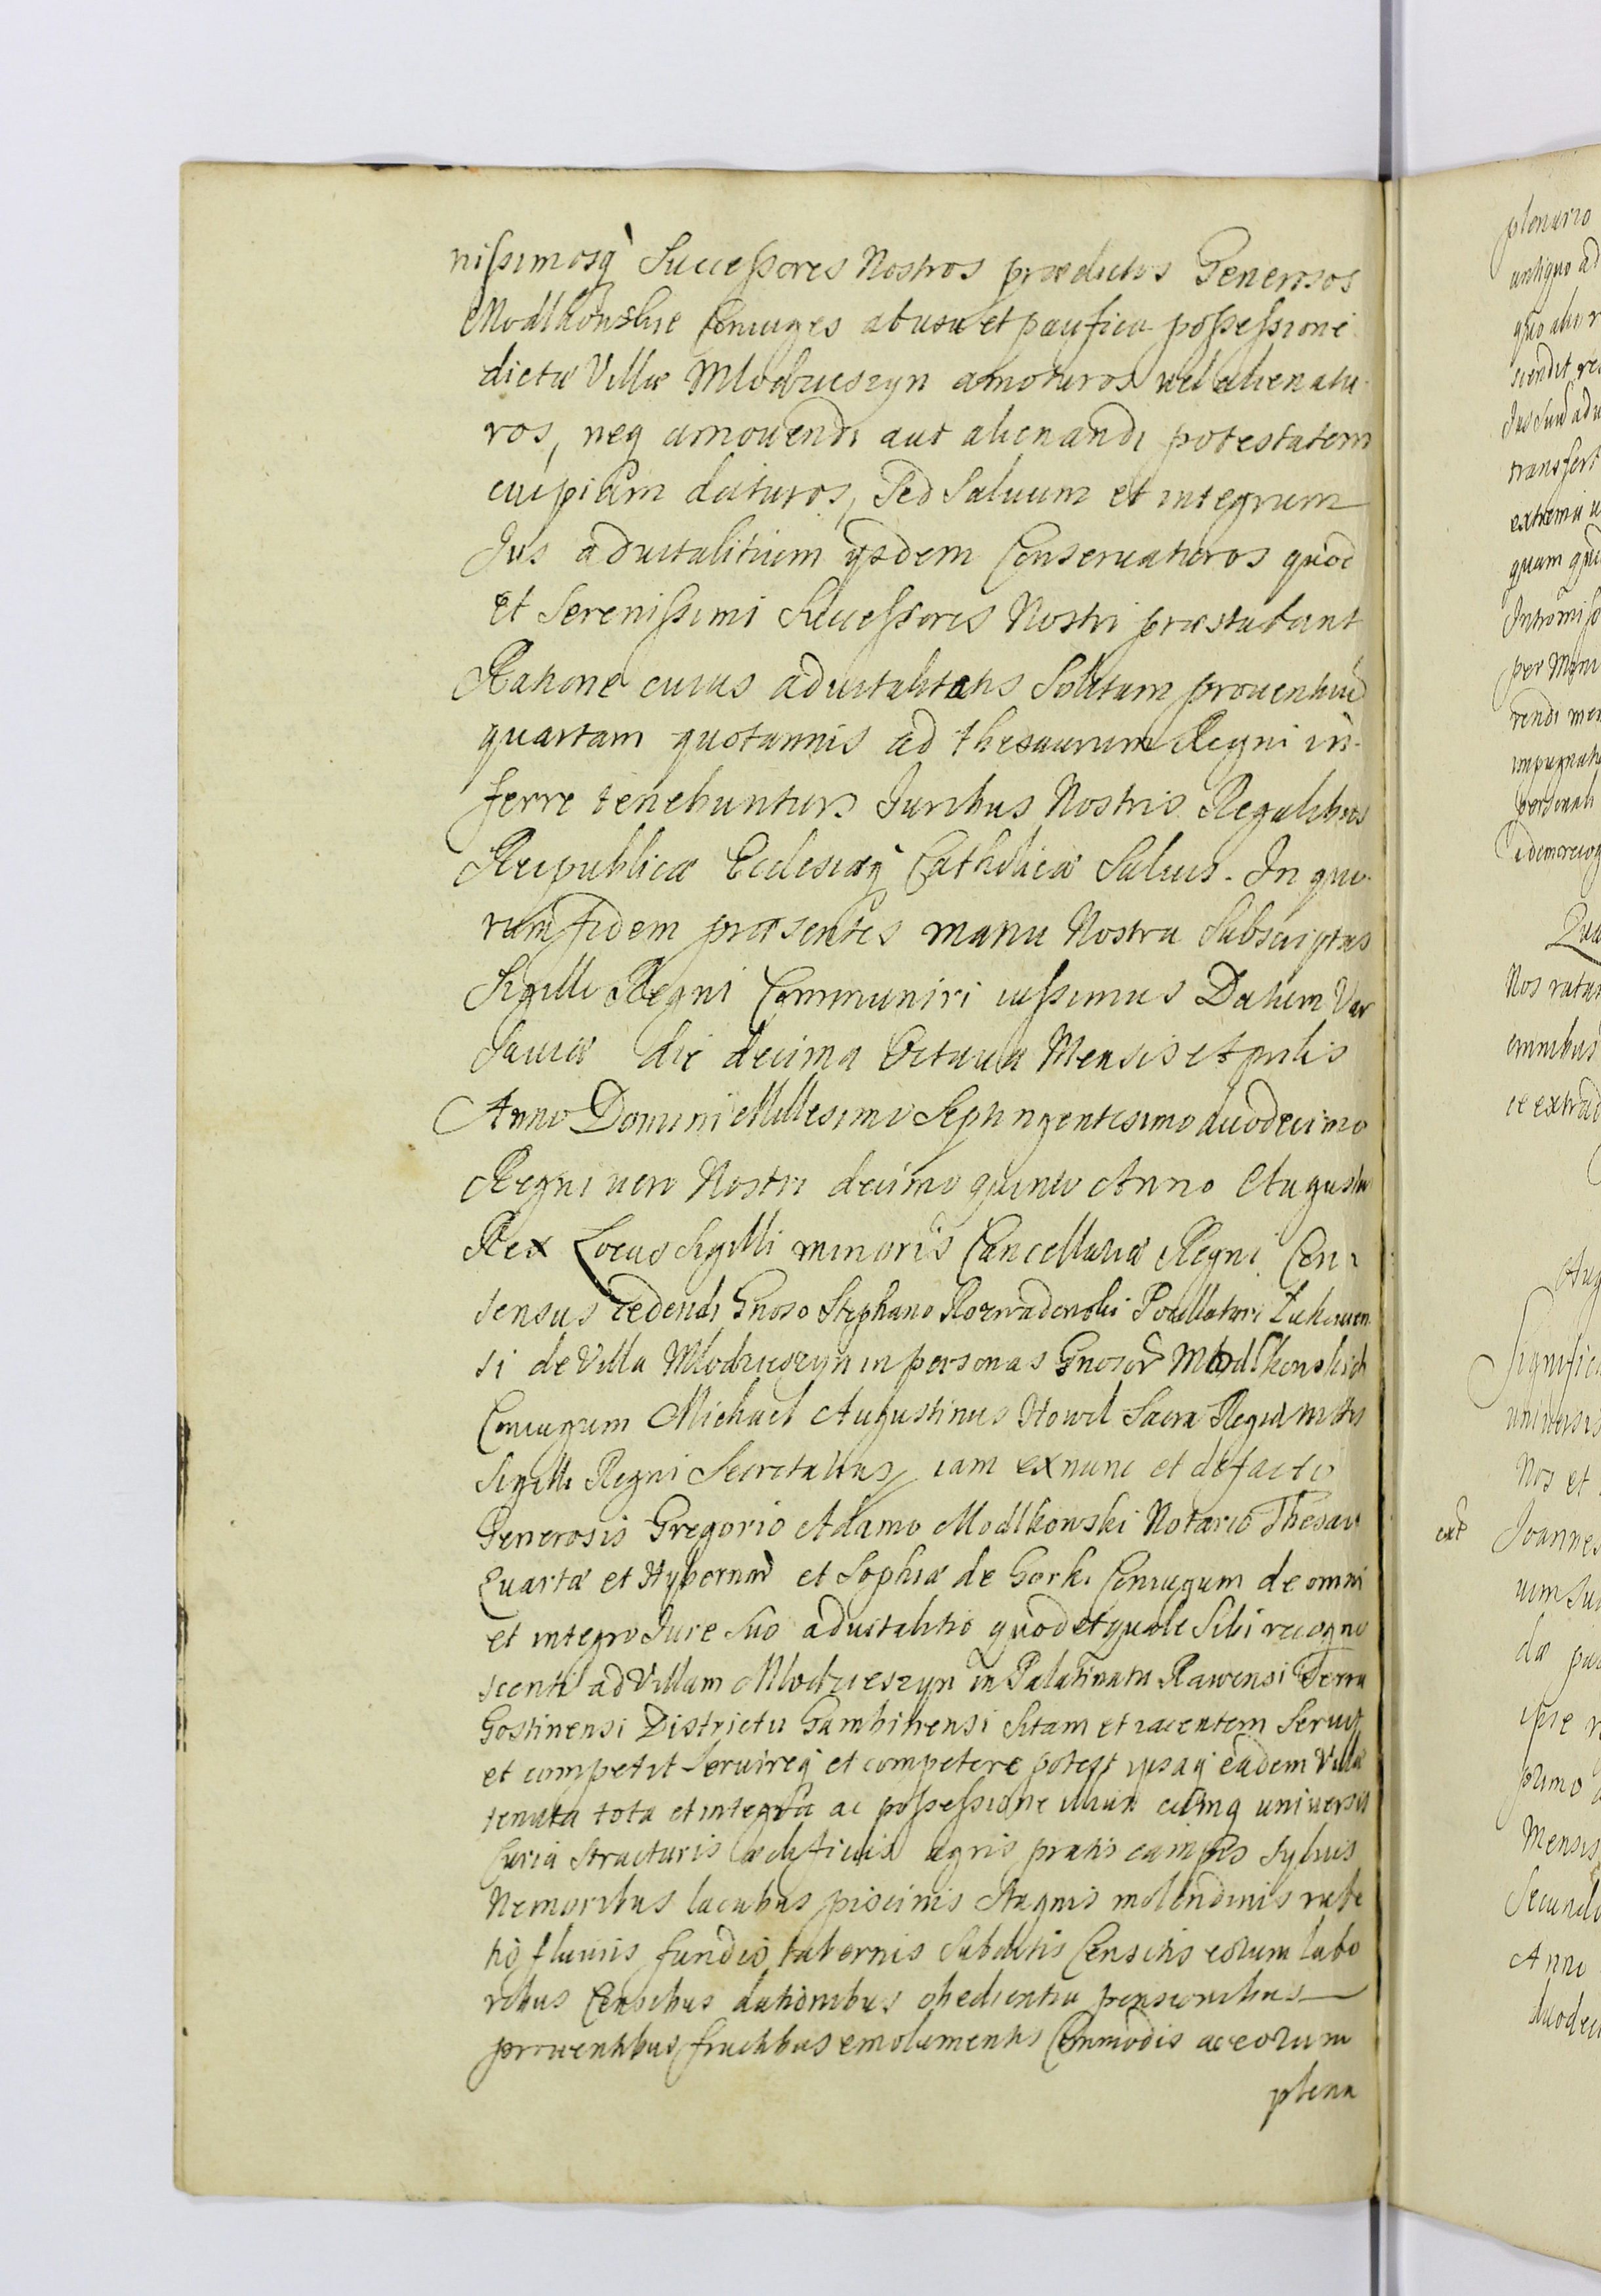 nissimosq̀ Successores Nostros prædictos Generosos
Modlkowskie Coniuges ab usu et pacifica possessione
dictæ Villæ Mlodzieszyn amoturos uel alienatu-
ros, neq amouendi aut alienandi potestatem
cuipiam daturos, Sed Saluum et integrum
Jus aduitalitium ysdem Conseruaturos quod
et Serenissimi Successores Nostri præstabunt
Ratione cuius aduitalitatis Solitam prouentuũ
quartam quotannis ad thesaurum Regni in-
ferre tenebuntur. Juribus Nostris Regalibus
Reipublicæ Ecclesiæq̀ Catholicæ Saluis. In quo-
rum fidem præsentes manu Nostra Subscriptas
Sigillo Regni Communiri iussimus Datum Var
Sauiæ die decima Octaua Mensis Aprilis
Anno Domini Millesimo Septingentesimo duodecimo
Regni uero Nostri decimo quinto Anno Augustus
Rex Locus Sigilli minoris Cancellariæ Regni Con-
sensus cedendi Gnoso Stephano Rozwadowski Pocillatori Lukowien
si de Villa Mlodzieszyn in personas Gnosor̃ Modlkowskich
Coniugum Michael Augustinus Howel Sacræ Regiæ Mttis
Sigilli Regni Secretarius, iam exnunc et defacto
Generosis Gregorio Adamo Modlkowski Notario Thesau
Quartæ et Hybernar̃ et Sophiæ de Gorki Coniugum de omni
et integro Jure Suo aduitalitio quod et quale Sibi recogno
scenti ad Villam Mlodzieszyn in Palatinatu Rawensi Terra
Gostinensi Districtu Gambinensi Sitam et iacentem Seruit
et competit Seruireq̀ et competere potest ipsaq̀ eadem Villa
tenuta tota et integra ac possessione illius cumq universis
Curia Structuris ædificiis agris pratis campis Syluis
Nemoribus lacubus piscinis Stagnis molendinis rube
tis fluuiis fundis tabernis Subditis Censitis eorum labo
ribus Censibus dationibus obedientia pensionibus
prouentibus fructibus emolumentis Commodis ac eorum
plena
plenario
antiquo ad
quo alio
transfert
extrema
per
Nos
omnibus
Significa
universis
Nos et
ext
Joannes
Mensis
Secunda
Anno